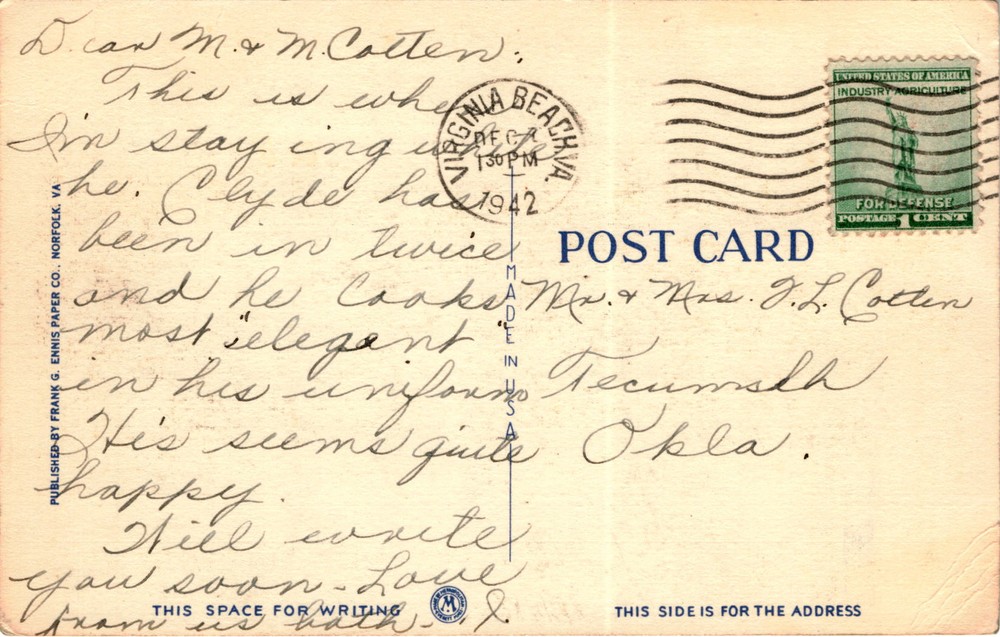 Dear M. & M. Cotten:
This is where
I'm staying
he. Clyde has
been in twice
and he looks
most "elegant"
in his uniform
He's seems quite
happy.
Will write
you soon - Love
from us both - I.
VIRGINIA BEACH VA.
DEC
1 30 PM
1942
UNITED STATES OF AMERICA
INDUSTRY AGRICULTURE
FOR DEFENSE
POSTAGE 1 CENT
POST CARD
Mr. & Mrs. J. L. Cotten
Tecumseh
Okla.
PUBLISHED BY FRANK G. ENNIS PAPER CO., NORFOLK, VA
MADE IN USA
THIS SPACE FOR WRITING
M
THIS SIDE IS FOR THE ADDRESS